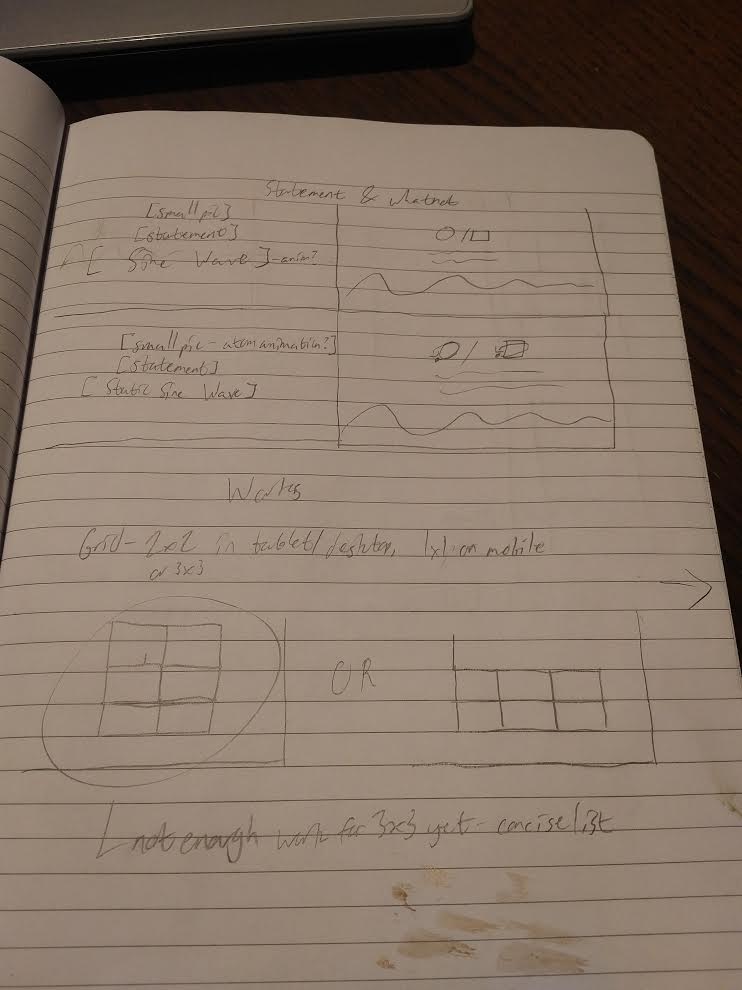 Statement & whatnot
[small pic]
[statement]
[ Sine Wave ] - anim?
[small pic - atom animation?]
[statement]
[ Static Sine Wave ]
Works
Grid - 2x2 in tablet/desktop, 1x1 on mobile
or 3x3
OR
not enough work for 3x3 yet - concise list